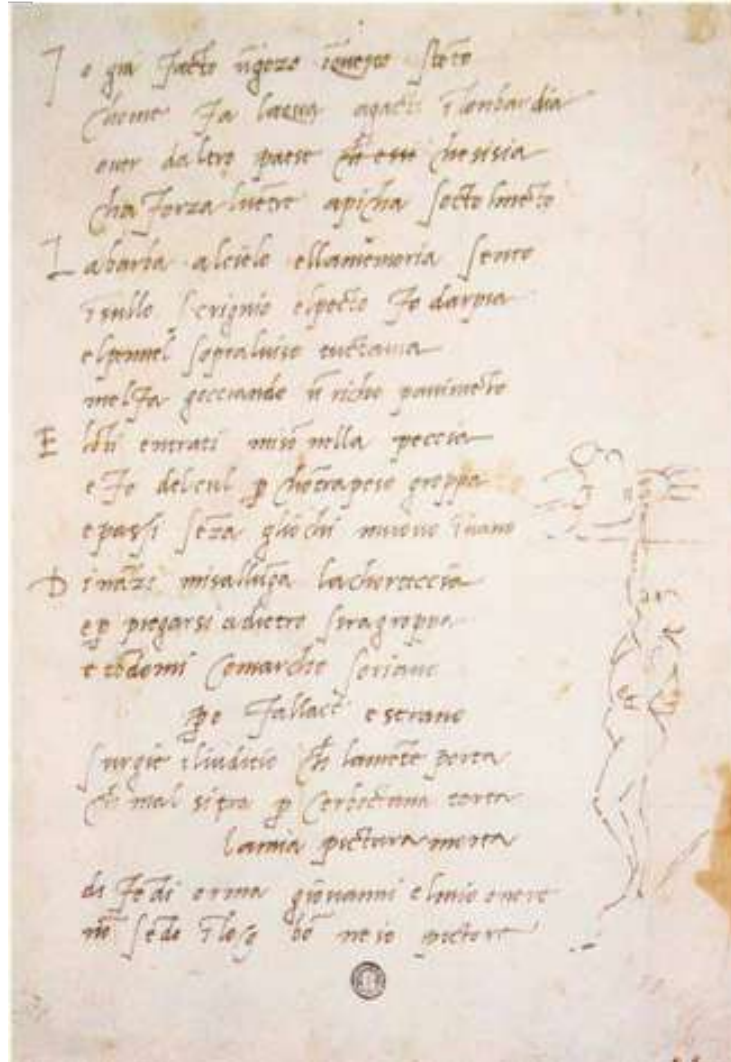 I o gia facto ūgozo īquesto stēto
chome fa lacqua agacti ī lombardia
over daltro paese ch̄ essi chesisia
cha forza lvētre apicha socto lmēto
L abarba alcielo ellamemoria sento
īsullo scrignio elpecto fo darpia
elpennel sopralviso tuctavia
melfa gocciando ū richo pavimēto
E lōbi entrati miso nella peccia
e fo delcul p̱ chōtrapeso groppa
epassi sēza gliochi muovo īvano
D ināzi misallūga lachorteccia
ep̱ piegarsi adietro siragroppa
e tēdomi comarcho soriano
po̱ fallace estrano
surgie iliuditio ch̄ lamēte porta
ch̄ mal sitra p̱ cerboctana torta
lamia pictura morta
di fēdi orma giovanni elmio onore
nō sēdo ī loco bō ne io pictore